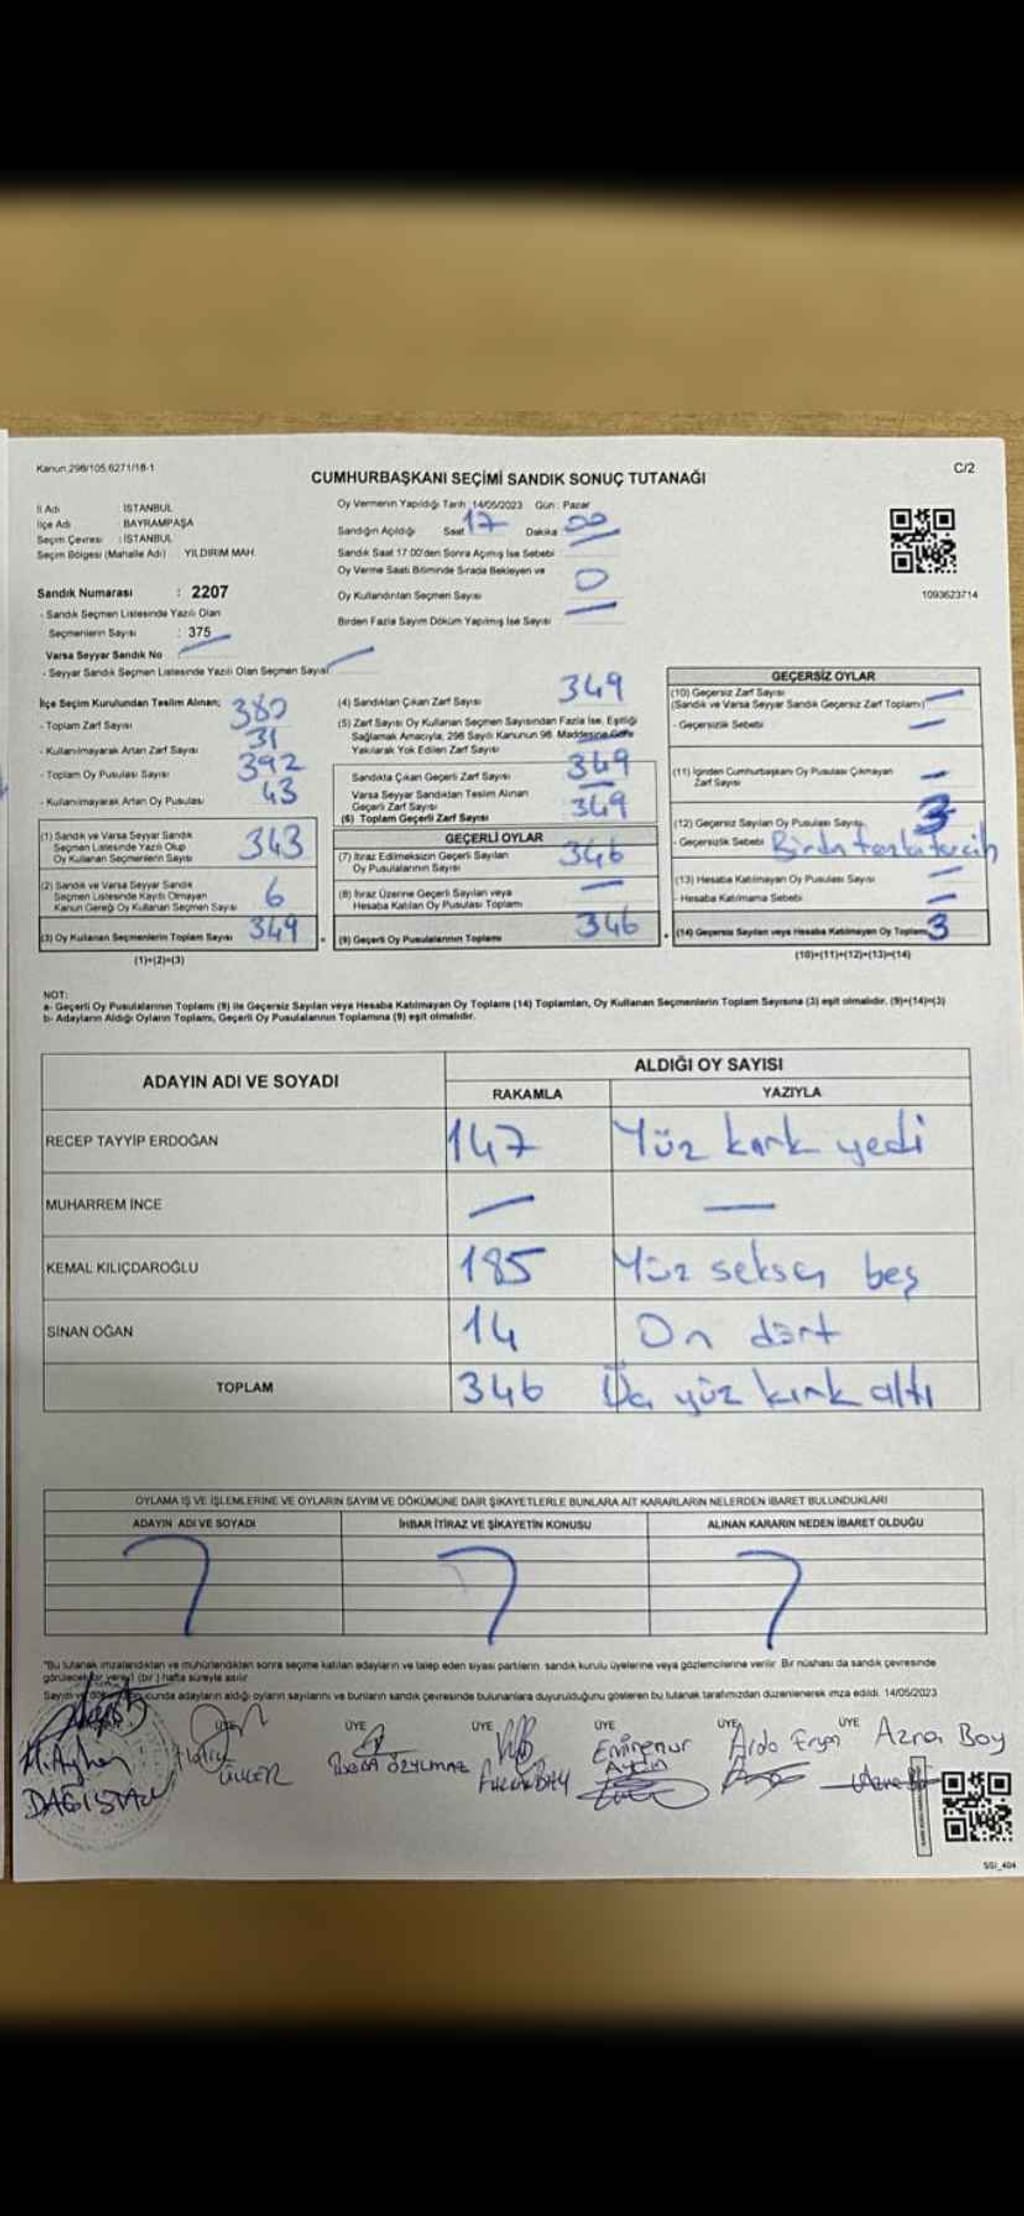 Kanun.298/105.6271/18-1
C/2
CUMHURBAŞKANI SEÇİMİ SANDIK SONUÇ TUTANAĞI
İl Adı : İSTANBUL
İlçe Adı : BAYRAMPAŞA
Seçim Çevresi : İSTANBUL
Seçim Bölgesi (Mahalle Adı) : YILDIRIM MAH.
Sandık Numarası : 2207
- Sandık Seçmen Listesinde Yazılı Olan
Seçmenlerin Sayısı : 375
Varsa Seyyar Sandık No
- Seyyar Sandık Seçmen Listesinde Yazılı Olan Seçmen Sayısı
Oy Vermenin Yapıldığı Tarih :14/05/2023 Gün : Pazar
Sandığın Açıldığı Saat 17 Dakika 00
Sandık Saat 17:00'den Sonra Açılmış İse Sebebi
Oy Verme Saati Bitiminde Sırada Bekleyen ve
Oy Kullandırılan Seçmen Sayısı 0
Birden Fazla Sayım Döküm Yapılmış İse Sayısı
1093623714
İlçe Seçim Kurulundan Teslim Alınan;
- Toplam Zarf Sayısı 380
- Kullanılmayarak Artan Zarf Sayısı 31
- Toplam Oy Pusulası Sayısı 392
- Kullanılmayarak Artan Oy Pusulası 43
(1) Sandık ve Varsa Seyyar Sandık
Seçmen Listesinde Yazılı Olup
Oy Kullanan Seçmenlerin Sayısı 343
(2) Sandık ve Varsa Seyyar Sandık
Seçmen Listesinde Kayıtlı Olmayan
Kanun Gereği Oy Kullanan Seçmen Sayısı 6
(3) Oy Kullanan Seçmenlerin Toplam Sayısı 349
(1)+(2)=(3)
(4) Sandıktan Çıkan Zarf Sayısı 349
(5) Zarf Sayısı Oy Kullanan Seçmen Sayısından Fazla İse, Eşitliği
Sağlamak Amacıyla, 298 Sayılı Kanunun 98. Maddesine Göre
Yakılarak Yok Edilen Zarf Sayısı
Sandıkta Çıkan Geçerli Zarf Sayısı 349
Varsa Seyyar Sandıktan Teslim Alınan
Geçerli Zarf Sayısı
(6) Toplam Geçerli Zarf Sayısı 349
GEÇERLİ OYLAR
(7) İtiraz Edilmeksizin Geçerli Sayılan
Oy Pusulalarının Sayısı 346
(8) İtiraz Üzerine Geçerli Sayılan veya
Hesaba Katılan Oy Pusulası Toplamı
(9) Geçerli Oy Pusulalarının Toplamı 346
GEÇERSİZ OYLAR
(10) Geçersiz Zarf Sayısı
(Sandık ve Varsa Seyyar Sandık Geçersiz Zarf Toplamı)
- Geçersizlik Sebebi
(11) İçinden Cumhurbaşkanı Oy Pusulası Çıkmayan
Zarf Sayısı
(12) Geçersiz Sayılan Oy Pusulası Sayısı 3
- Geçersizlik Sebebi Birden fazla tercih
(13) Hesaba Katılmayan Oy Pusulası Sayısı
- Hesaba Katılmama Sebebi
(14) Geçersiz Sayılan veya Hesaba Katılmayan Oy Toplamı 3
(10)+(11)+(12)+(13)=(14)
NOT:
a- Geçerli Oy Pusulalarının Toplamı (9) ile Geçersiz Sayılan veya Hesaba Katılmayan Oy Toplamı (14) Toplamları, Oy Kullanan Seçmenlerin Toplam Sayısına (3) eşit olmalıdır. (9)+(14)=(3)
b- Adayların Aldığı Oyların Toplamı, Geçerli Oy Pusulalarının Toplamına (9) eşit olmalıdır.
ADAYIN ADI VE SOYADI
ALDIĞI OY SAYISI
RAKAMLA YAZIYLA
RECEP TAYYİP ERDOĞAN 147 Yüz kırk yedi
MUHARREM İNCE
KEMAL KILIÇDAROĞLU 185 Yüz seksen beş
SİNAN OĞAN 14 On dört
TOPLAM 346 Üç yüz kırk altı
OYLAMA İŞ VE İŞLEMLERİNE VE OYLARIN SAYIM VE DÖKÜMÜNE DAİR ŞİKAYETLERLE BUNLARA AİT KARARLARIN NELERDEN İBARET BULUNDUKLARI
ADAYIN ADI VE SOYADI İHBAR İTİRAZ VE ŞİKAYETİN KONUSU ALINAN KARARIN NEDEN İBARET OLDUĞU
"Bu tutanak imzalandıktan ve mühürlendikten sonra seçime katılan adayların ve talep eden siyasi partilerin sandık kurulu üyelerine veya gözlemcilerine verilir. Bir nüshası da sandık çevresinde
görülecek bir yere 1 (bir ) hafta süreyle asılır
Sayım ve döküm sonucunda adayların aldığı oyların sayılarını ve bunların sandık çevresinde bulunanlara duyurulduğunu gösteren bu tutanak tarafımızdan düzenlenerek imza edildi. 14/05/2023
ÜYE ÜYE ÜYE ÜYE ÜYE ÜYE
M. Ayhan
DAĞISTAN
ÖZYILMAZ
Eminenur
Aydın
Arda
Azra Boy
SGİ_404